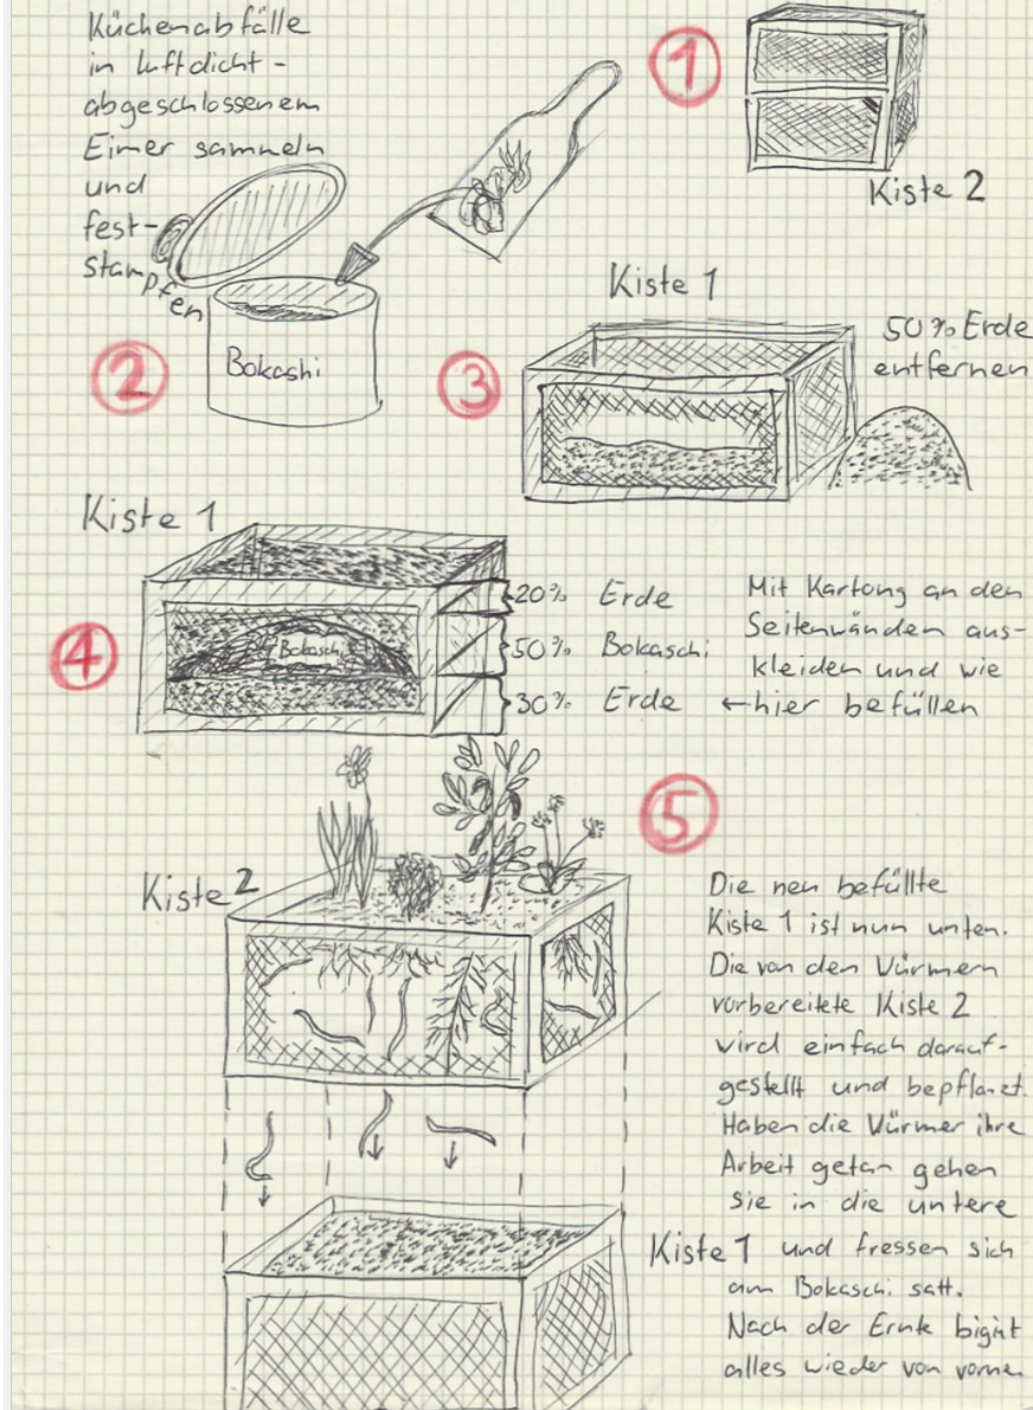 Küchenabfälle
in luftdicht-
abgeschlossenem
Eimer sammeln
und
fest-
stampfen
1
Kiste 2
2
Bokashi
Kiste 1
3
50% Erde
entfernen
Kiste 1
4
Bokaschi
20% Erde
50% Bokaschi
30% Erde
Mit Kartong an den
Seitenwänden aus-
kleiden und wie
←hier befüllen
5
Kiste 2
Die neu befüllte
Kiste 1 ist nun unten.
Die von den Würmern
vorbereitete Kiste 2
wird einfach darauf-
gestellt und bepflanzt.
Haben die Würmer ihre
Arbeit getan gehen
sie in die untere
Kiste 1 und fressen sich
am Bokaschi satt.
Nach der Ernte bigint
alles wieder von vorne